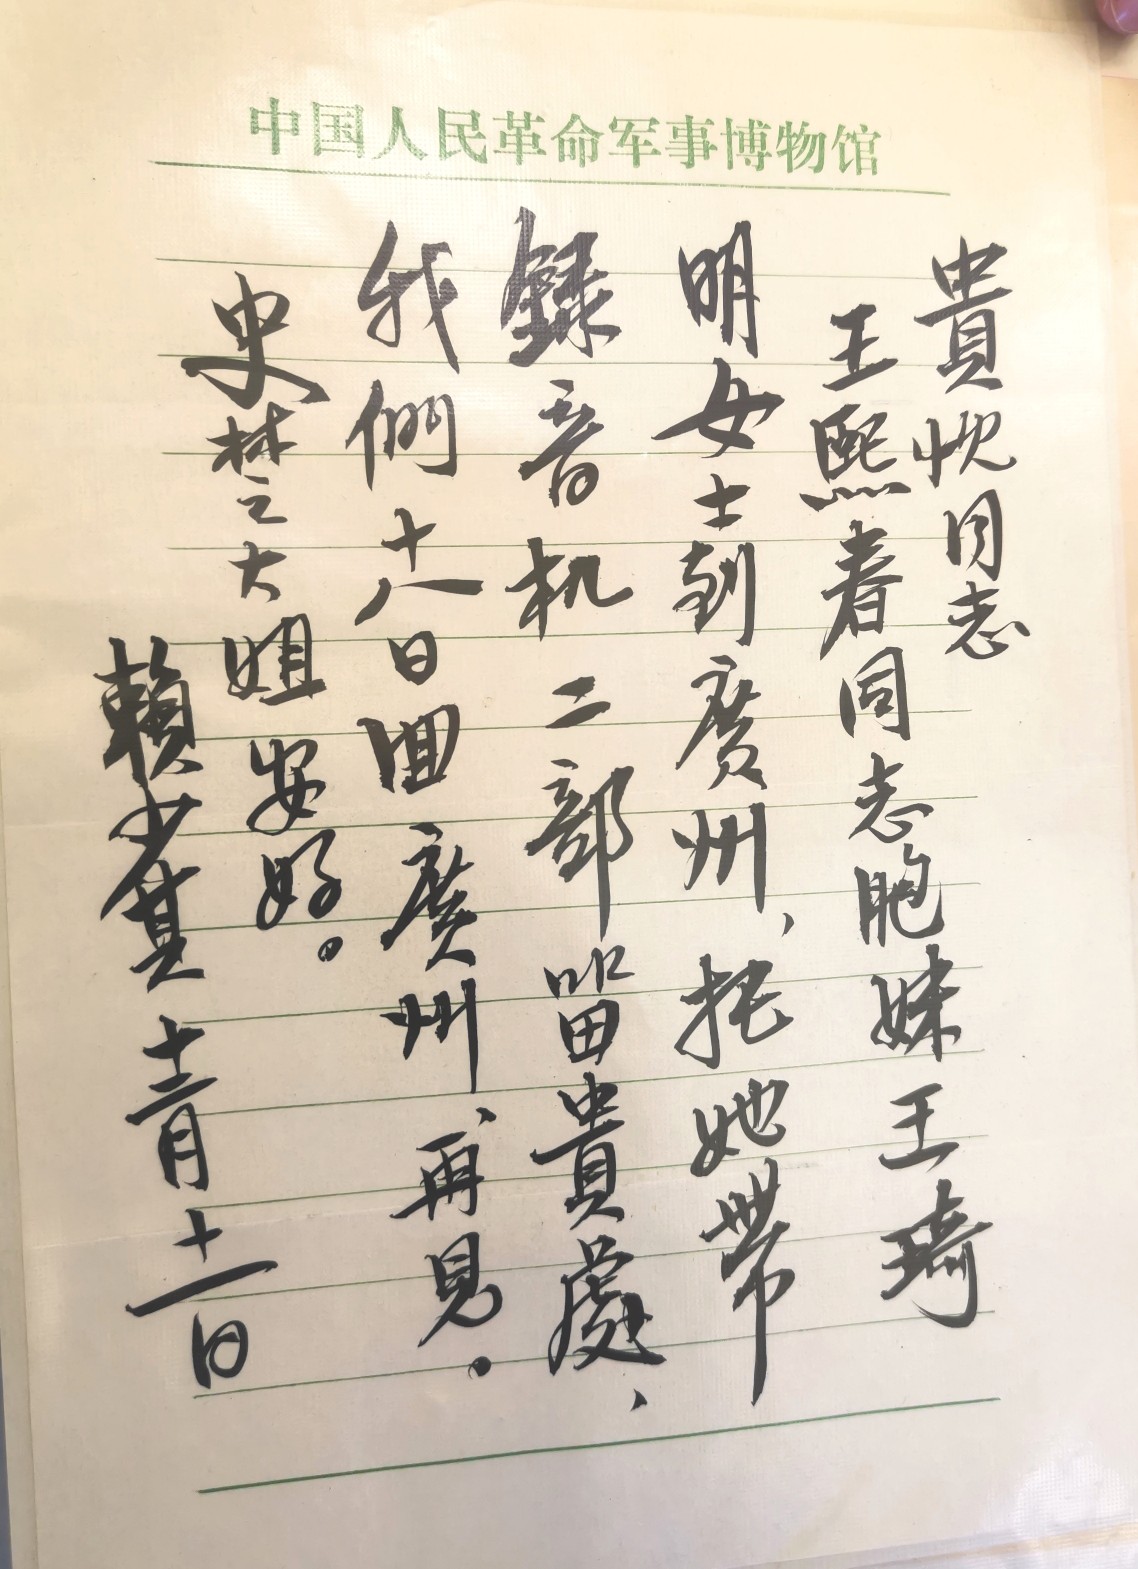 中国人民革命军事博物馆
貴忱同志
王熙春同志胞妹王琦
明女士到廣州、托她带
錄音机二部留貴處、
我們十八日回廣州、再見。
史楚之大姐安好。
賴少其 十二月十一日